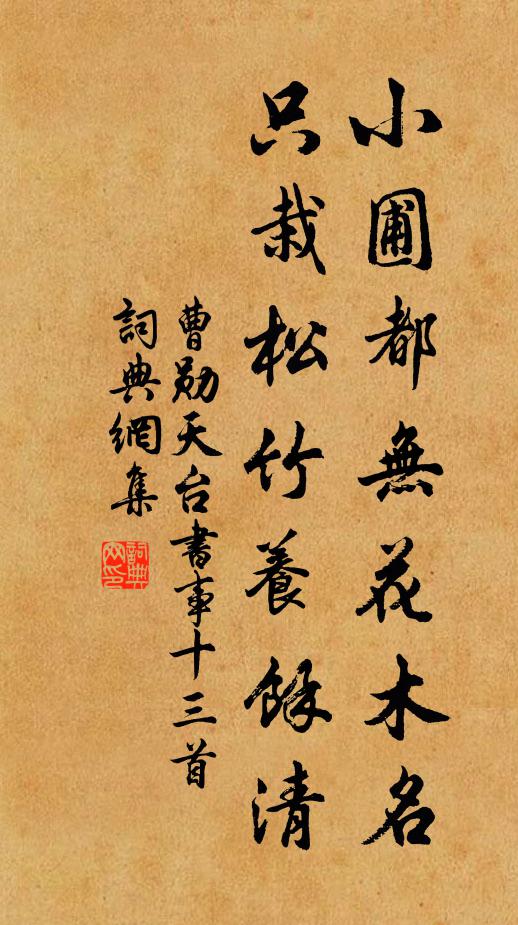 小圃都無花木名
只栽松竹養餘清
曹勛天台書事十三首
詞典網集
詞典
网印